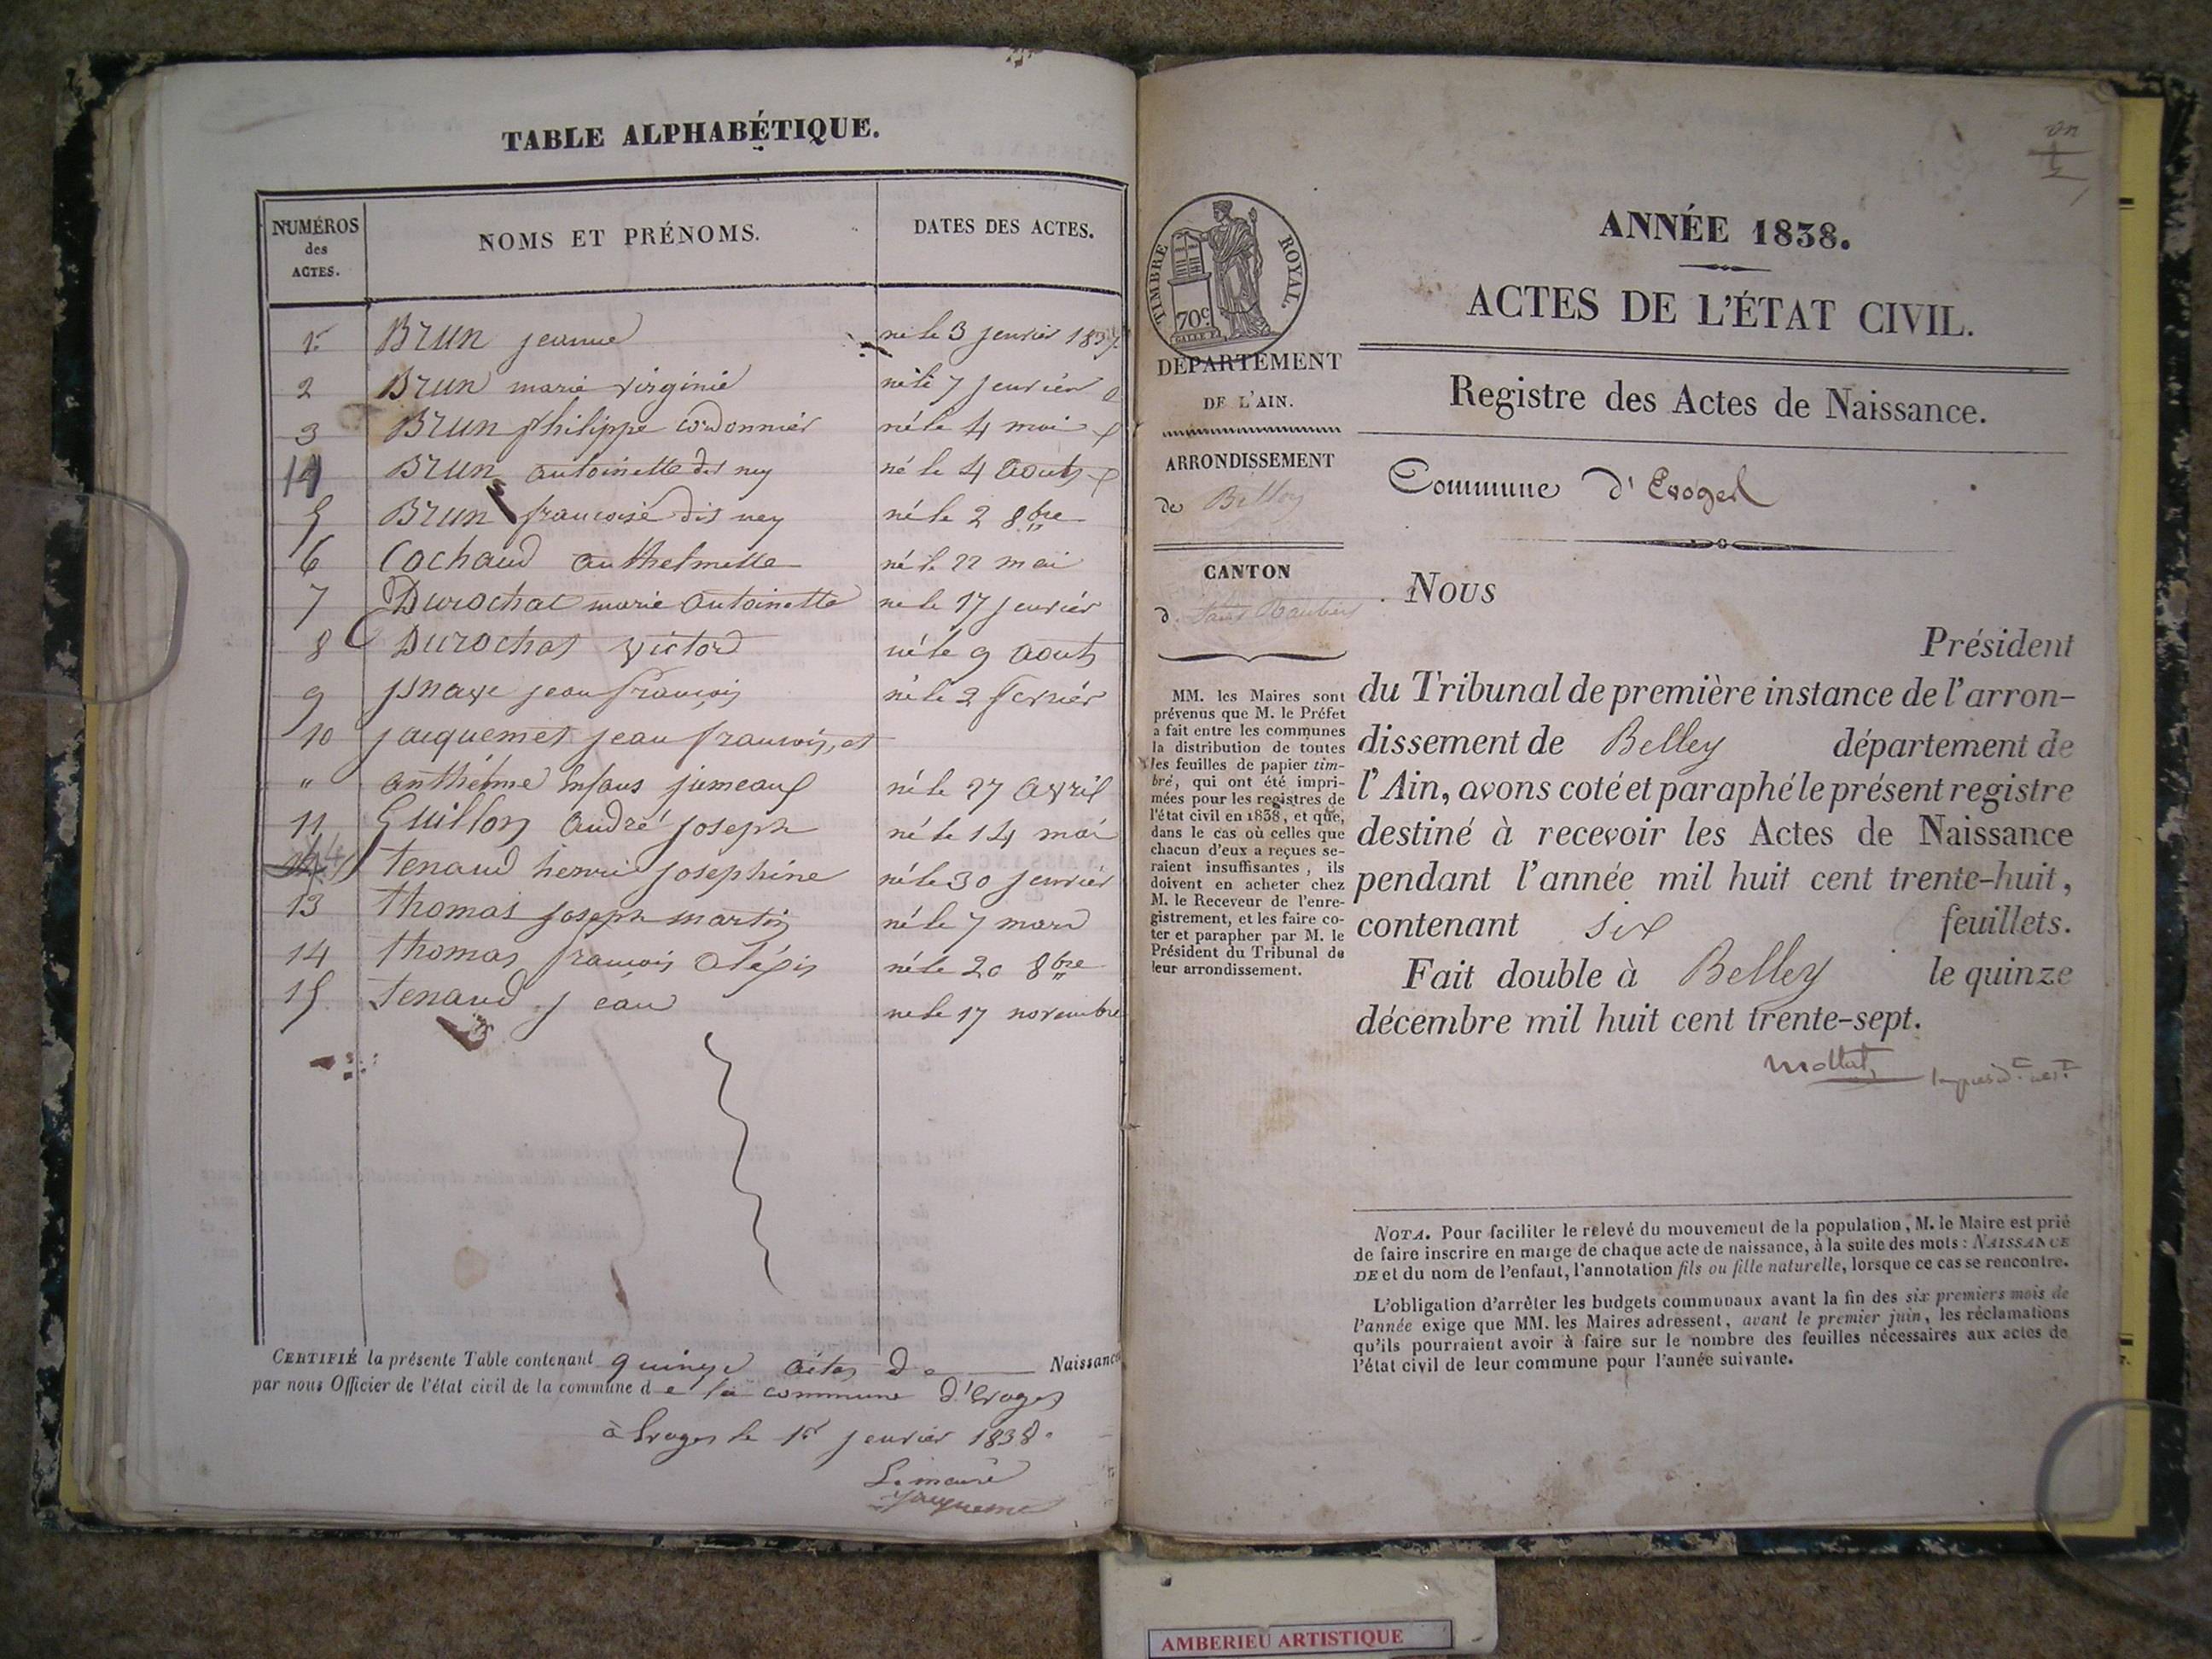 TABLE ALPHABÉTIQUE.
NUMÉROS des ACTES. NOMS ET PRÉNOMS. DATES DES ACTES.
1r Brun jeanne né le 3 jenvier 1837
2 Brun marie virginie né le 7 jenvier
3 Brun philippe cordonnier né le 4 mai
4 Brun antoinette dis ney né le 4 Aout
5 Brun francoise dis ney né le 2 8bre
6 Cochaud Anthelmette né le 22 mai
7 Durochat marie Antoinette né le 17 jenvier
8 Durochat victor né le 9 Aout
9 jsnave jean françois né le 2 fevrier
10 jacquemet jean francois, et
" anthelme Enfans jumeaux né le 27 Avril
11 Guillon André joseph né le 14 mai
tenaud henri josephine né le 30 jenvier
13 thomas joseph martin né le 7 mars
14 thomas françois Aléxis né le 20 8bre
15 tenaud jean né le 17 novembre
CERTIFIÉ la présente Table contenant quinze Actes De Naissance
par nous Officier de l'état civil de la commune de la commune d'Evoges
à Evoges le 1r jenvier 1838.
Le maire
jacquemet
ANNÉE 1838.
ACTES DE L'ÉTAT CIVIL.
Registre des Actes de Naissance.
Commune d'Evoges
TIMBRE ROYAL.
70c
DÉPARTEMENT
DE L'AIN.
ARRONDISSEMENT
de Belley
CANTON
d.
MM. les Maires sont
prévenus que M. le Préfet
a fait entre les communes
la distribution de toutes
les feuilles de papier tim-
bré, qui ont été impri-
mées pour les registres de
l'état civil en 1838, et que,
dans le cas où celles que
chacun d'eux a reçues se-
raient insuffisantes, ils
doivent en acheter chez
M. le Receveur de l'enre-
gistrement, et les faire co-
ter et parapher par M. le
Président du Tribunal de
leur arrondissement.
Nous
Président
du Tribunal de première instance de l'arron-
dissement de Belley département de
l'Ain, avons coté et paraphé le présent registre
destiné à recevoir les Actes de Naissance
pendant l'année mil huit cent trente-huit,
contenant six feuillets.
Fait double à Belley le quinze
décembre mil huit cent trente-sept.
NOTA. Pour faciliter le relevé du mouvement de la population, M. le Maire est prié
de faire inscrire en marge de chaque acte de naissance, à la suite des mots : NAISSANCE
DE et du nom de l'enfant, l'annotation fils ou fille naturelle, lorsque ce cas se rencontre.
L'obligation d'arrêter les budgets communaux avant la fin des six premiers mois de
l'année exige que MM. les Maires adressent, avant le premier juin, les réclamations
qu'ils pourraient avoir à faire sur le nombre des feuilles nécessaires aux actes de
l'état civil de leur commune pour l'année suivante.
AMBERIEU ARTISTIQUE